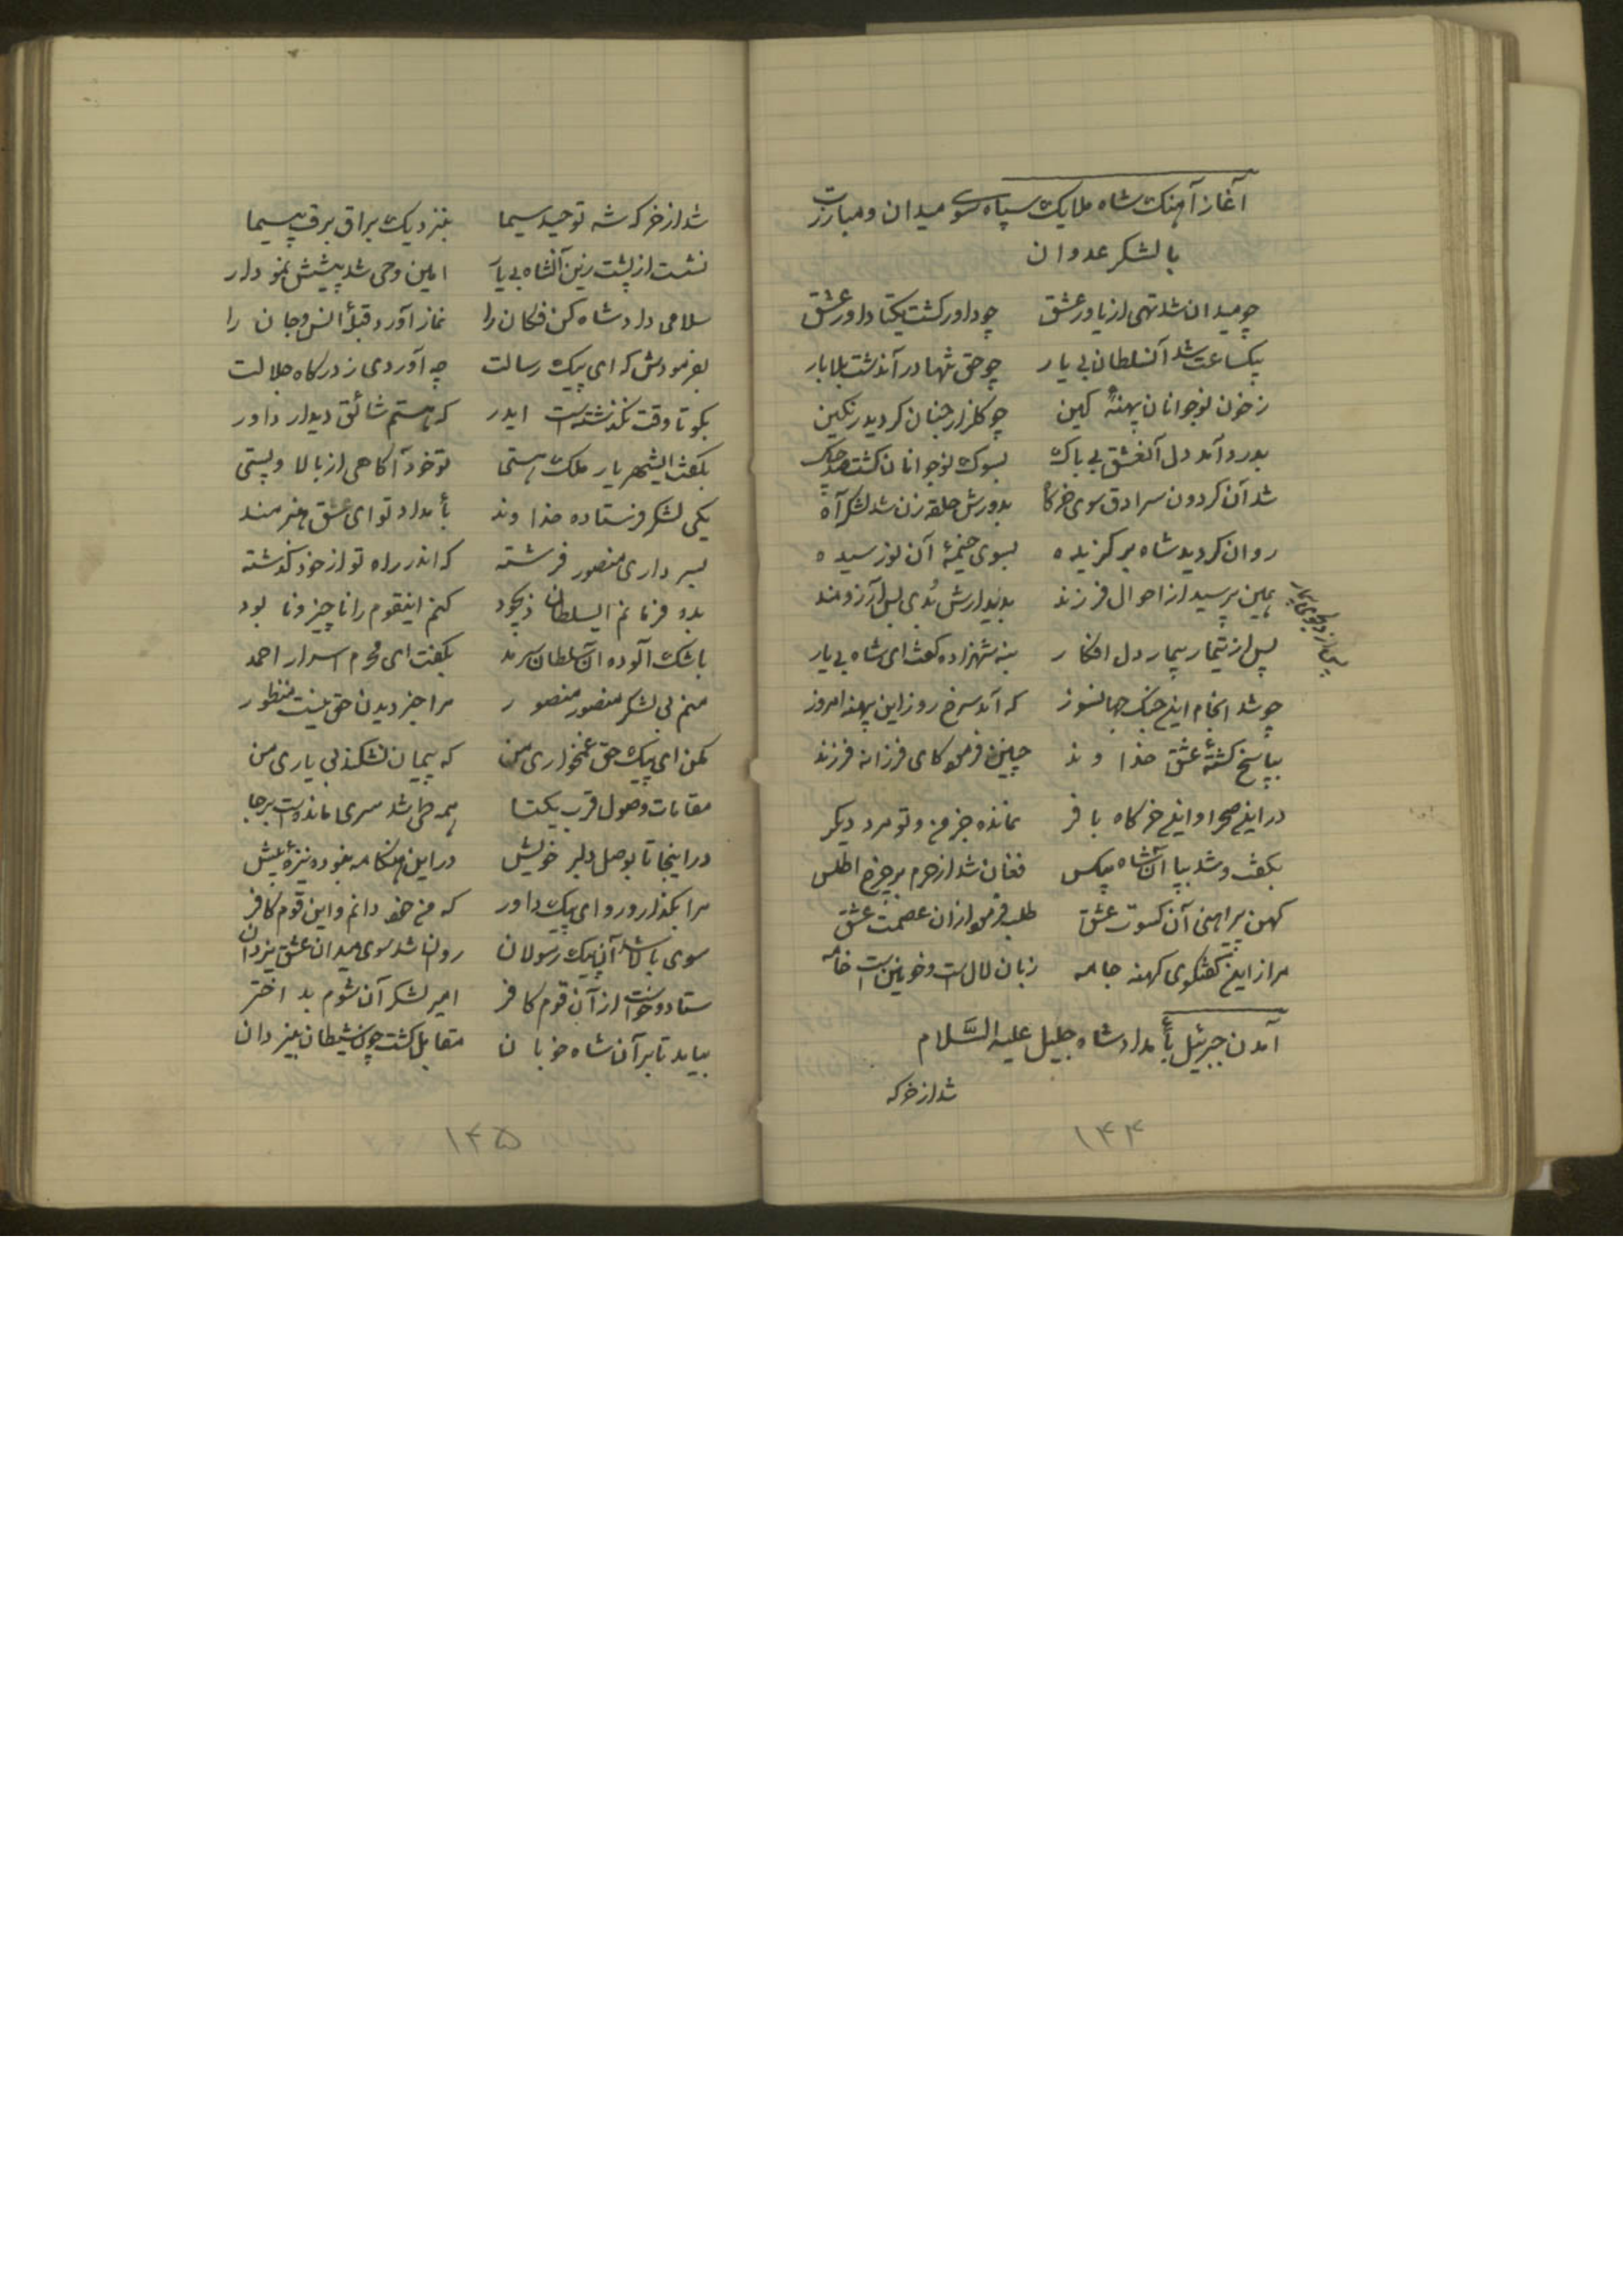 آغاز آهنک شاه ملایک سپاه بسوی میدان و مبارزت
با لشکر عدوان
چو میدان شد تهی از یاور عشق چو داور کشت یکتا داور عشق
یکساعت شد آنسلطان بی یار چو حق تنها در آندشت بلابار
ز خون نوجوانان پهنهٔ کین چو کلزار جنان کردید رنکین
بدرد آمد دل آنعشق بی باک بسوک نوجوانان کشت صد چاک
شد آن کردون سرادق سوی خرکاه بدورش حلقه زن شد لشکر آه
روان کردید شاه برکزیده بسوی خیمهٔ آن نور سیده
همین پرسید از احوال فرزند بدیدارش بُدی بس آرزومند
پس از تیمار بیمار دل افکار بشه شهزاده کفت ای شاه بی یار
چو شد انجام این جنک جهانسوز که آمد سرخ روز این پهنه امروز
بپاسخ کشتهٔ عشق خداوند چنین فرمود کای فرزانه فرزند
در این صحرا و این خرکاه بافر نمانده جز من و تو مرد دیکر
بکفت و شد بپا آن شاه بیکس فغان شد از حرم بر چرخ اطلس
کهن پیراهنی آن کسوت عشق طلب فرمود از ان عصمت عشق
مرا از این کفتکوی کهنه جامه زبان لال است و خونین است خامه
آمدن جبرئیل بأمداد شاه جلیل علیه السَّلام
شد از خرکه
۱۴۴
شد از خرکه شه توحید سیما بنزدیک براق برق پیما
نشست از پشت زین آنشاه بی یار امین وحی شد پیشش نمودار
سلامی داد شاه کن فکان را نماز آورد قبلهٔ انس و جان را
بفرمودش که ای پیک رسالت چه آوردی ز درکاه جلالت
بکو تا وقت نکذشته است ایدر که هستم شائق دیدار داور
بکفت ایشهریار ملک هستی تو خود آکاهی از بالا و پستی
یکی لشکر فرستاده خداوند بأمداد تو ای عشق هنرمند
بسرداری منصور فرشته که اندر راه تو از خود کذشته
بده فرمانم ایسلطان ذیجود کنم اینقوم را ناچیز و نابود
باشک آلوده آن سلطان سرمد بکفت ای محرم اسرار احمد
منم بی لشکر منصور منصور مرا جز دیدن حق نیست منظور
مکن ای پیک حق غمخواری من که پیمان نشکند بی یاری من
مقامات وصول قرب یکتا همه طی شد سری مانده است برجا
در اینجا تا بوصل دلبر خویش در این هنکامه نبود نیزهٔ بیش
مرا بکذار و رو ای پیک داور که من خود دانم و این قوم کافر
سوی بالا شد آن پیک رسولان روان شد سوی میدان عشق یزدان
ستاد و خواست از آن قوم کافر امیر لشکر آن شوم بد اختر
بیاید تا بر آن شاه خوبان مقابل کشت چون شیطان بیزدان
۱۴۵